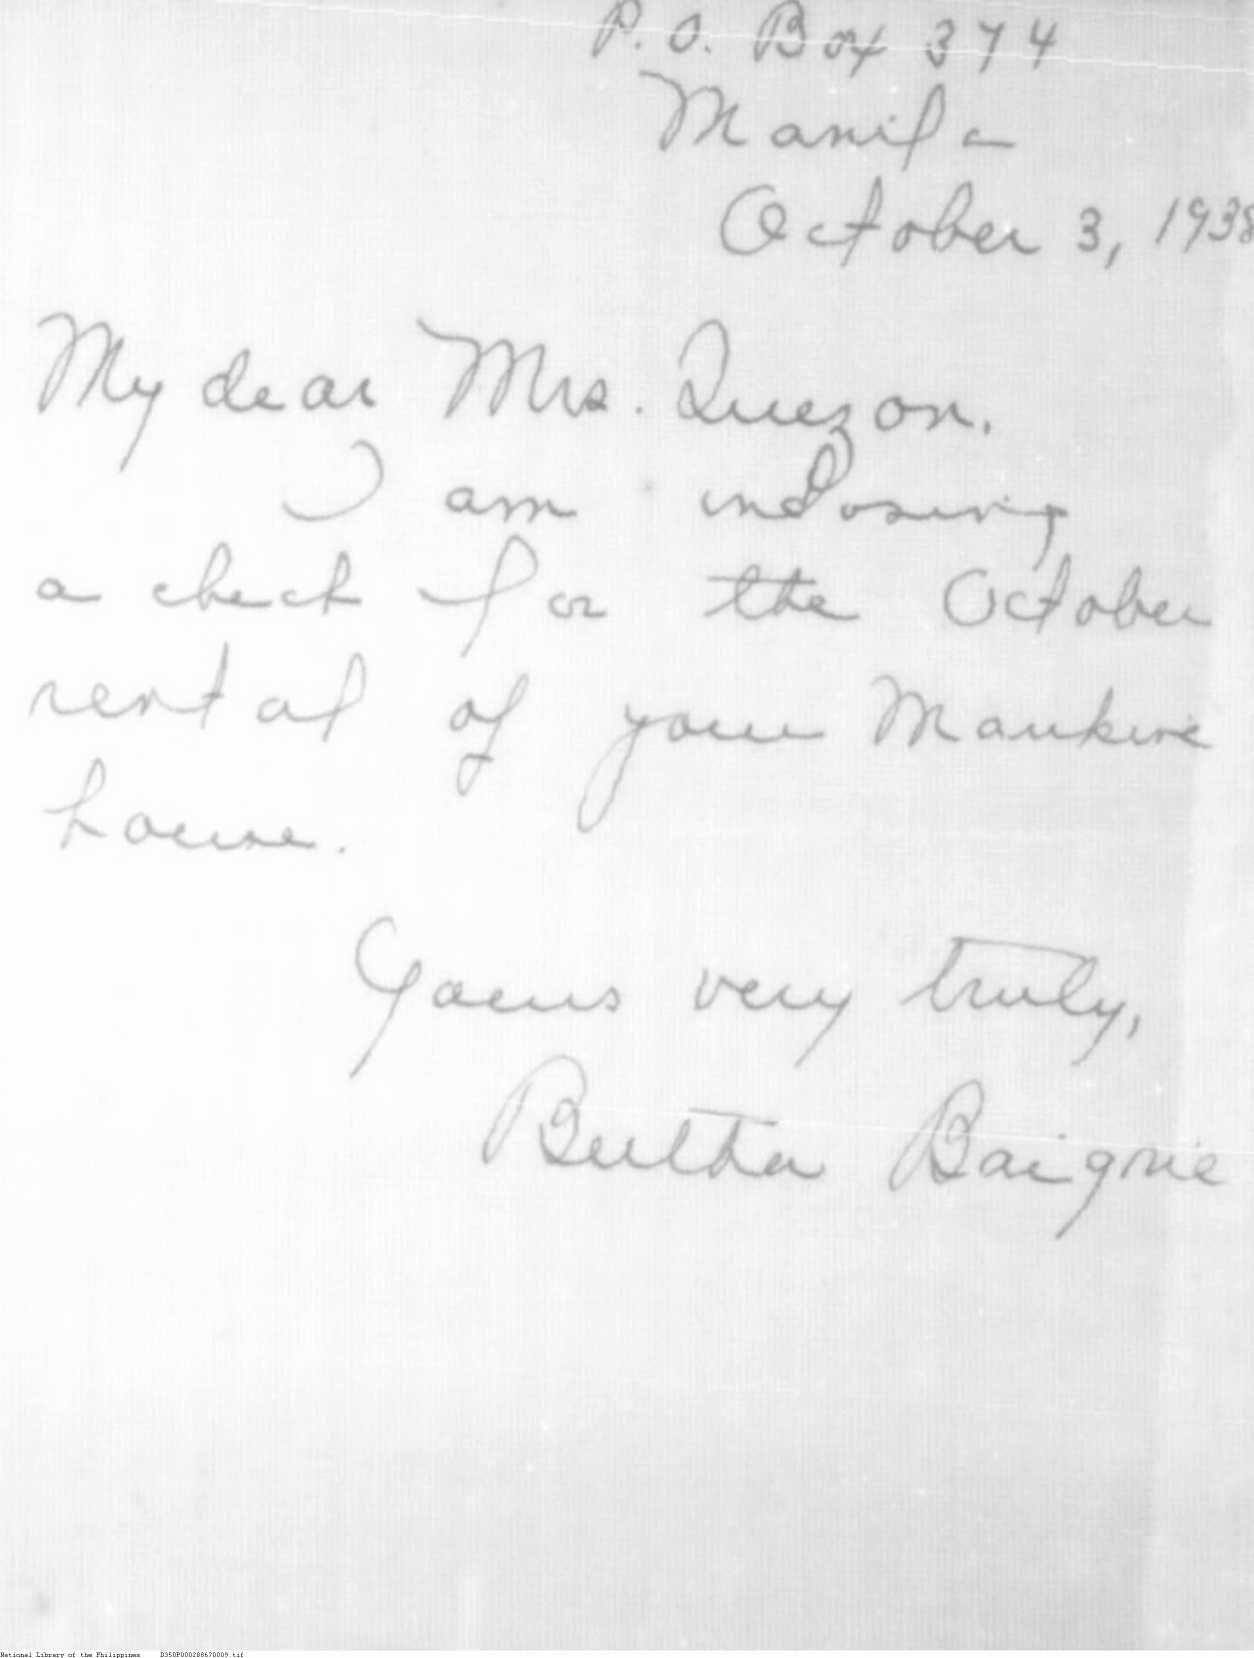 P.O. Box 374
Manila
October 3, 1938
My dear Mrs. Quezon.
I am inclosing
a check for the October
rental of your
house.
Yours very truly,
Bertha Baigrie
National Library of the Philippines D350P000288670009.tif